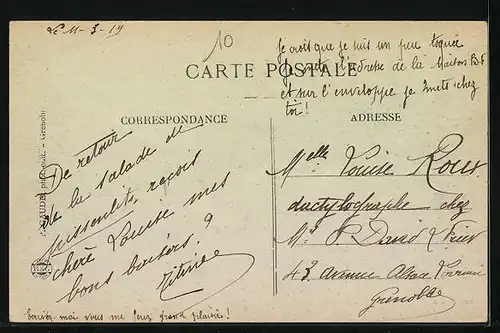 Le 11-3-19
10
Je crois que je suis un peu toquée
je mets l'adresse de la Maison
et sur l'enveloppe je mets chez
toi !
CARTE POSTALE
CORRESPONDANCE
ADRESSE
De retour
de la salade de
pissenlits, reçois
chère Louise mes
bons baisers ?
Titine
Melle Louise Roux
dactylographe chez
Mr P. David
43 avenue Alsace Lorraine
Grenoble
Ecrivez-moi vous me ferez grand plaisir !
phot.-édit. - Grenoble